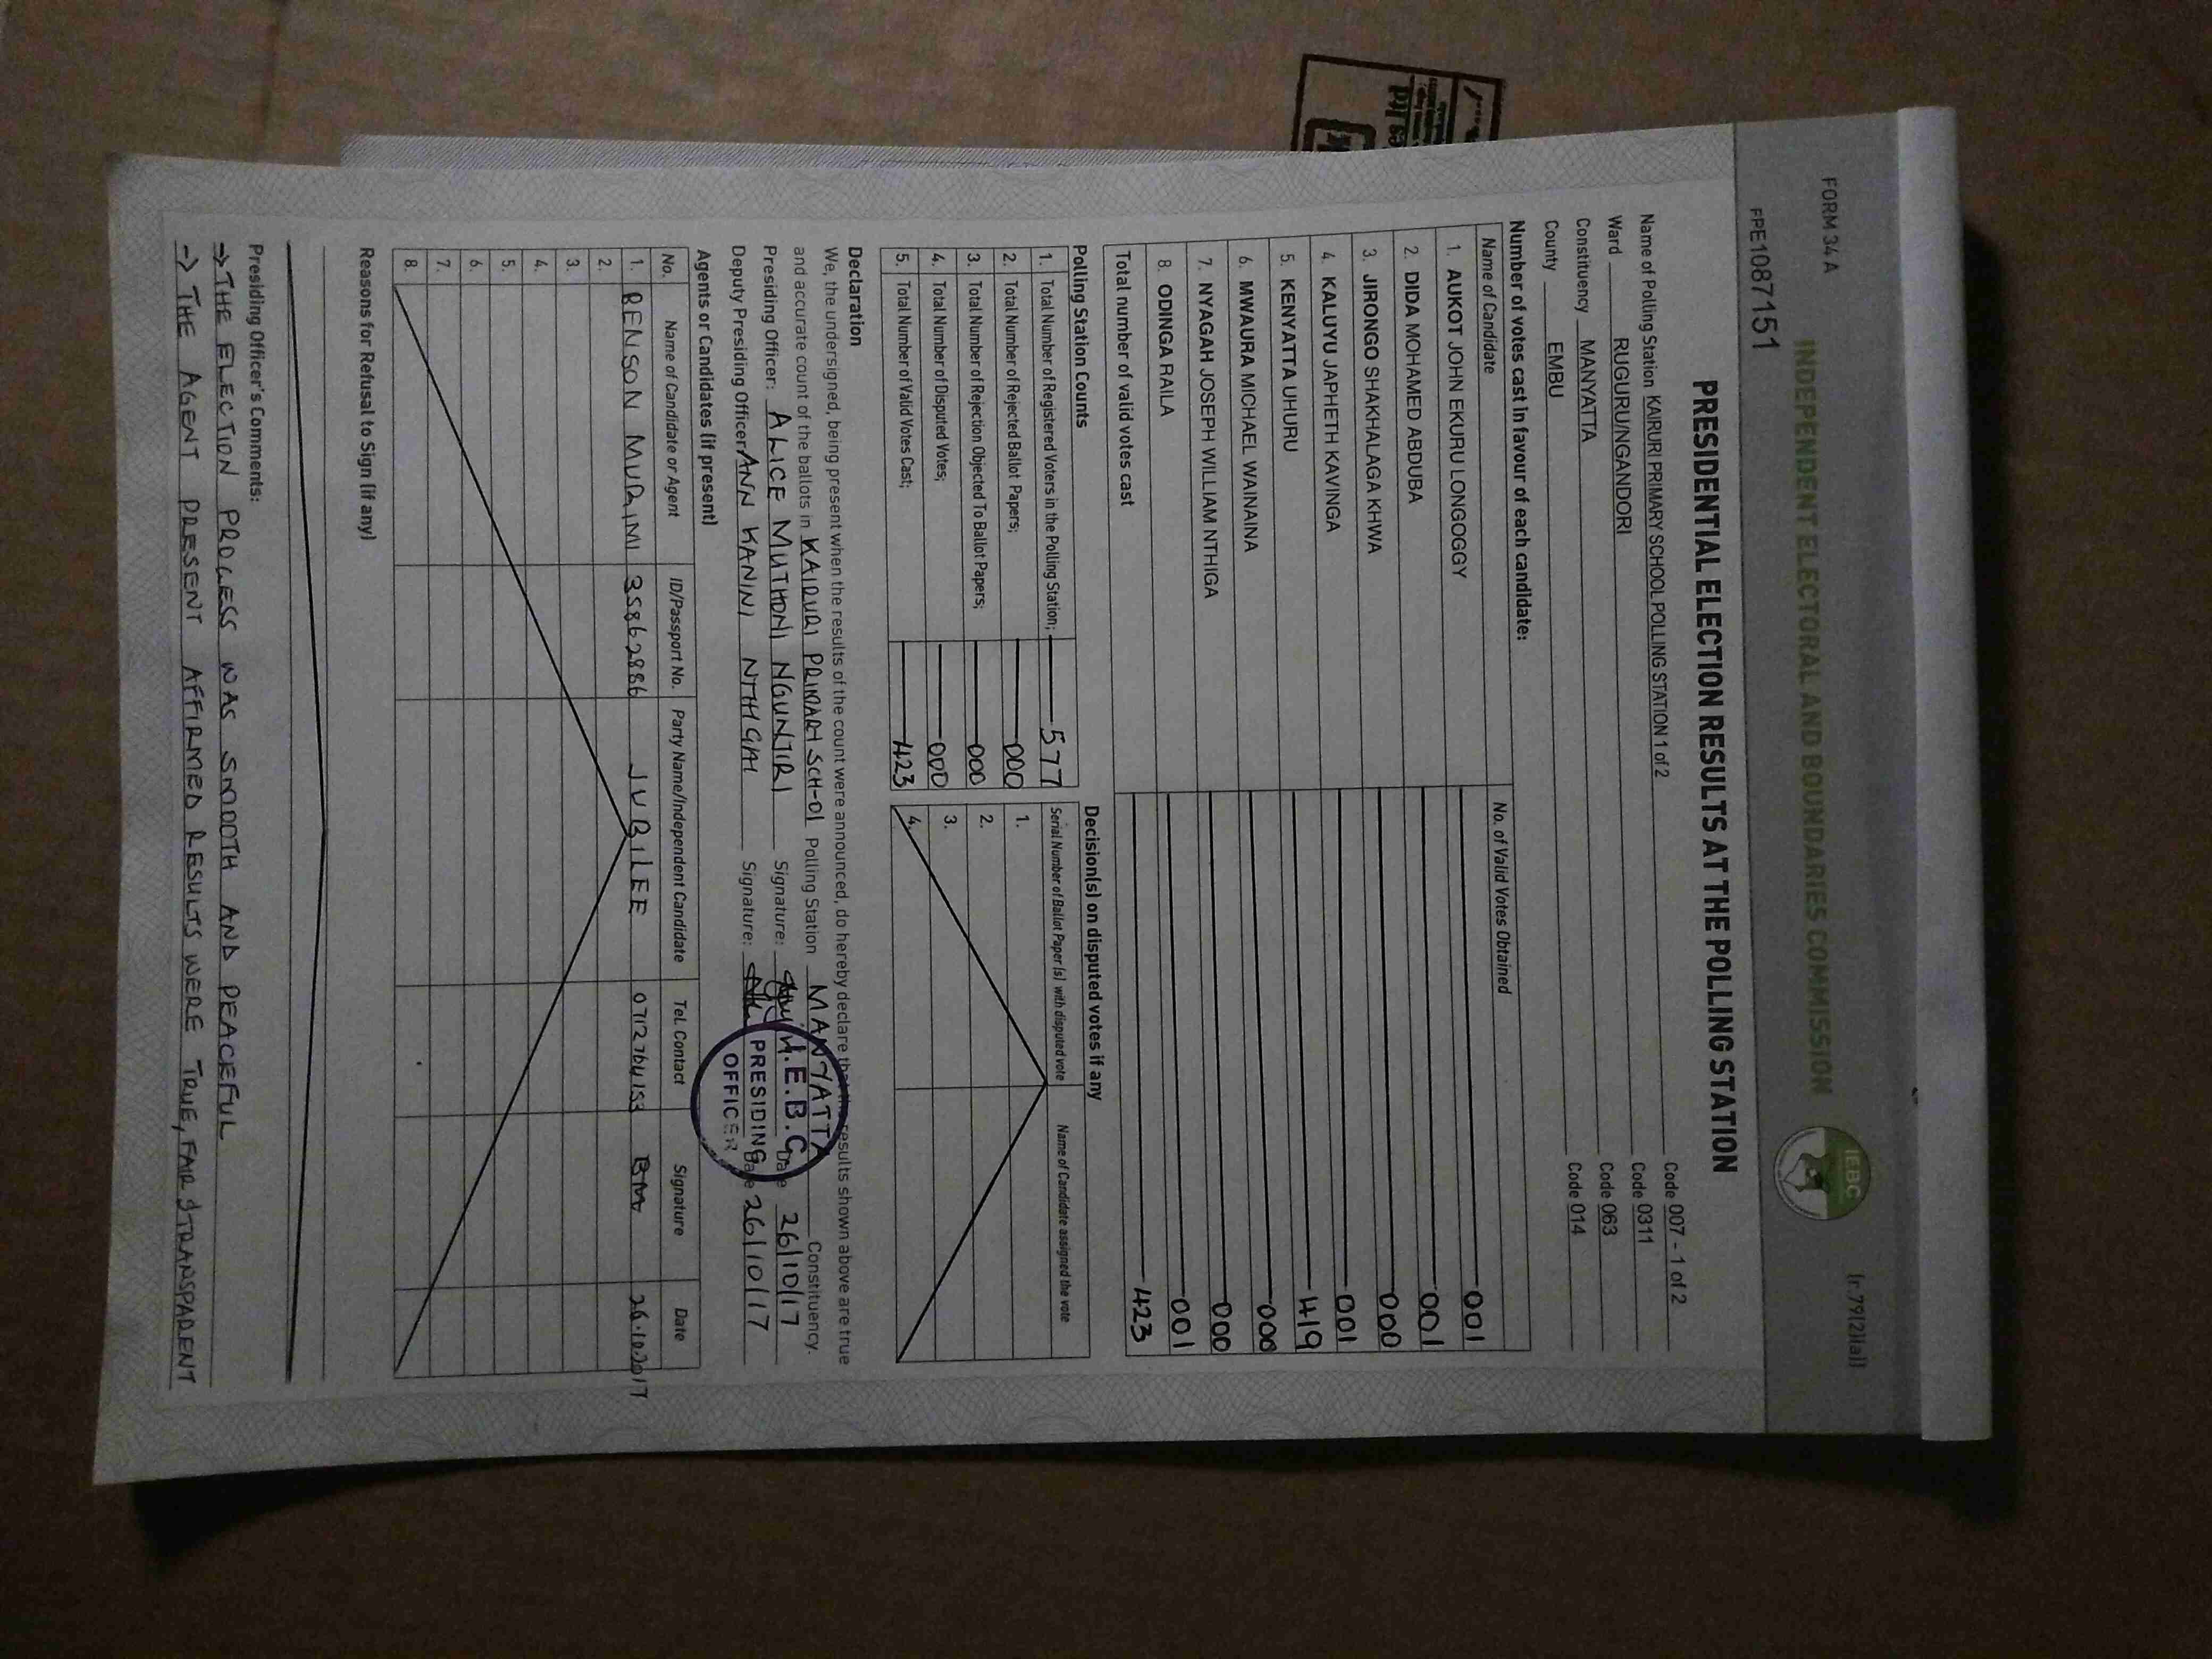 FORM 34 A
(r.79(2)(a))
INDEPENDENT ELECTORAL AND BOUNDARIES COMMISSION
IEBC
PPE1087151
PRESIDENTIAL ELECTION RESULTS AT THE POLLING STATION
Name of Polling Station KAIRURI PRIMARY SCHOOL POLLING STATION 1 of 2 Code 007 - 1 of 2
Ward RUGURU/NGANDORI Code 0311
Constituency MANYATTA Code 063
County EMBU Code 014
Number of votes cast in favour of each candidate:
Name of Candidate No. of Valid Votes Obtained
1. AUKOT JOHN EKURU LONGOGGY 001
2. DIDA MOHAMED ABDUBA 001
3. JIRONGO SHAKHALAGA KHWA 000
4. KALUYU JAPHETH KAVINGA 001
5. KENYATTA UHURU 419
6. MWAURA MICHAEL WAINAINA 000
7. NYAGAH JOSEPH WILLIAM NTHIGA 000
8. ODINGA RAILA 001
Total number of valid votes cast 423
Polling Station Counts
1. Total Number of Registered Voters in the Polling Station; 577
2. Total Number of Rejected Ballot Papers; 000
3. Total Number of Rejection Objected To Ballot Papers; 000
4. Total Number of Disputed Votes; 000
5. Total Number of Valid Votes Cast; 423
Decision(s) on disputed votes if any
Serial Number of Ballot Paper (s) with disputed vote Name of Candidate assigned the vote
1.
2.
3.
4.
Declaration
We, the undersigned, being present when the results of the count were announced, do hereby declare that the results shown above are true
and accurate count of the ballots in KAIRURI PRIMARY SCH-01 Polling Station MANYATTA Constituency.
Presiding Officer: ALICE MUTHONI NGUNJIRI Signature: Date 26/10/17
Deputy Presiding Officer ANN KANINI NTHIGAI Signature: Date 26/10/17
I.E.B.C
PRESIDING
OFFICER
Agents or Candidates (if present)
No. Name of Candidate or Agent ID/Passport No. Party Name/Independent Candidate Tel. Contact Signature Date
1. BENSON MURIMI 35862886 JUBILEE 0712764153 BM 26.10.2017
2.
3.
4.
5.
6.
7.
8.
Reasons for Refusal to Sign (if any)
Presiding Officer's Comments:
→ THE ELECTION PROCESS WAS SMOOTH AND PEACEFUL
→ THE AGENT PRESENT AFFIRMED RESULTS WERE TRUE, FAIR & TRANSPARENT